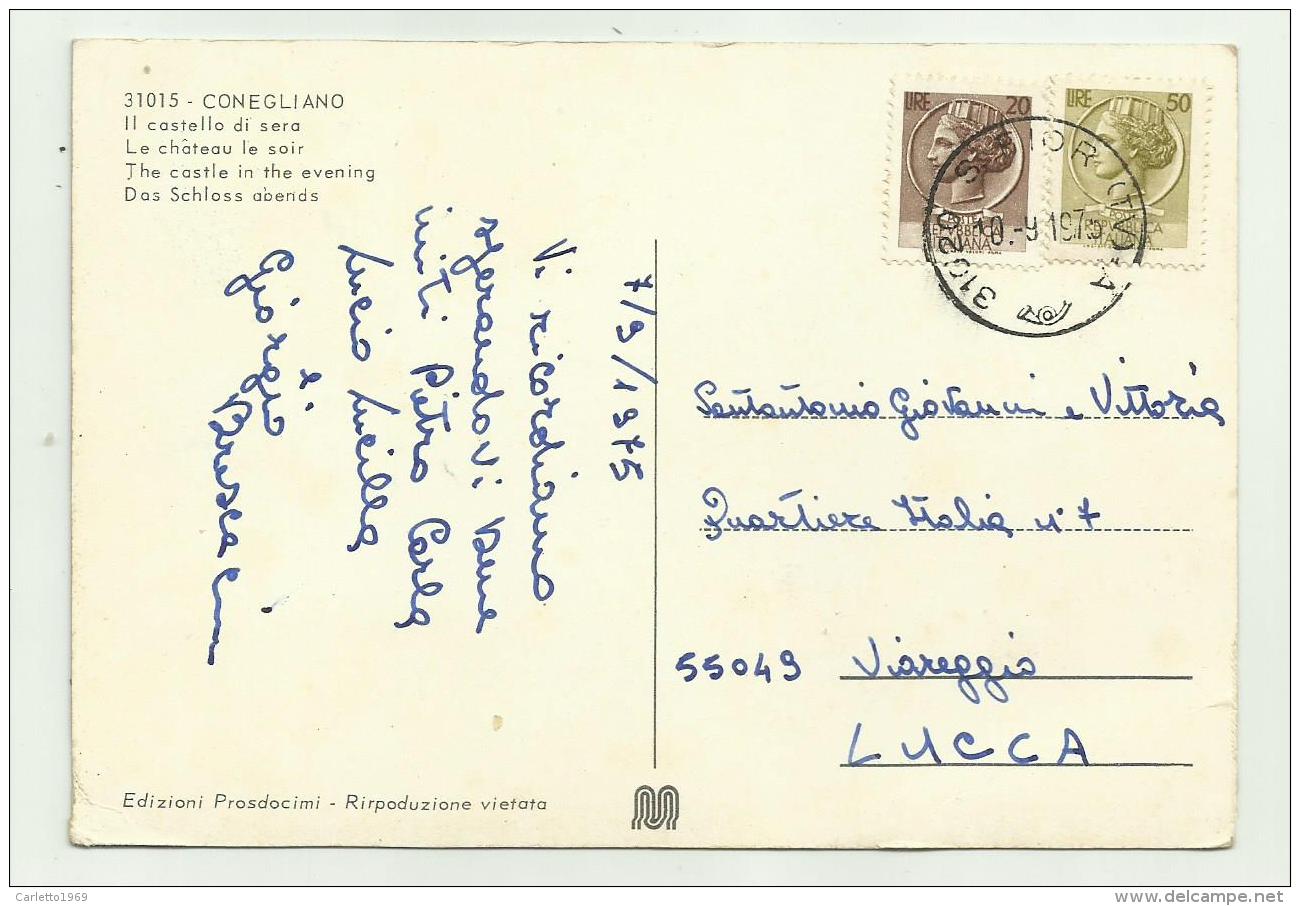 31015 - CONEGLIANO
Il castello di sera
Le château le soir
The castle in the evening
Das Schloss abends
LIRE 20
POSTE
REPUBBLICA
ITALIANA
LIRE 50
POSTE
REPUBBLICA
ITALIANA
31020 S. FIOR (TV)
10.-9 1975
7/9/1975
Vi ricordiamo
sperandovi bene
uniti Pietro Carla
Lucio Lucilla
e
Giorgio
Santantonio Giovanni e Vittoria
Quartiere Italia n° 7
55049 Viareggio
LUCCA
Edizioni Prosdocimi - Rirpoduzione vietata
Carletto1969
delcampe.net